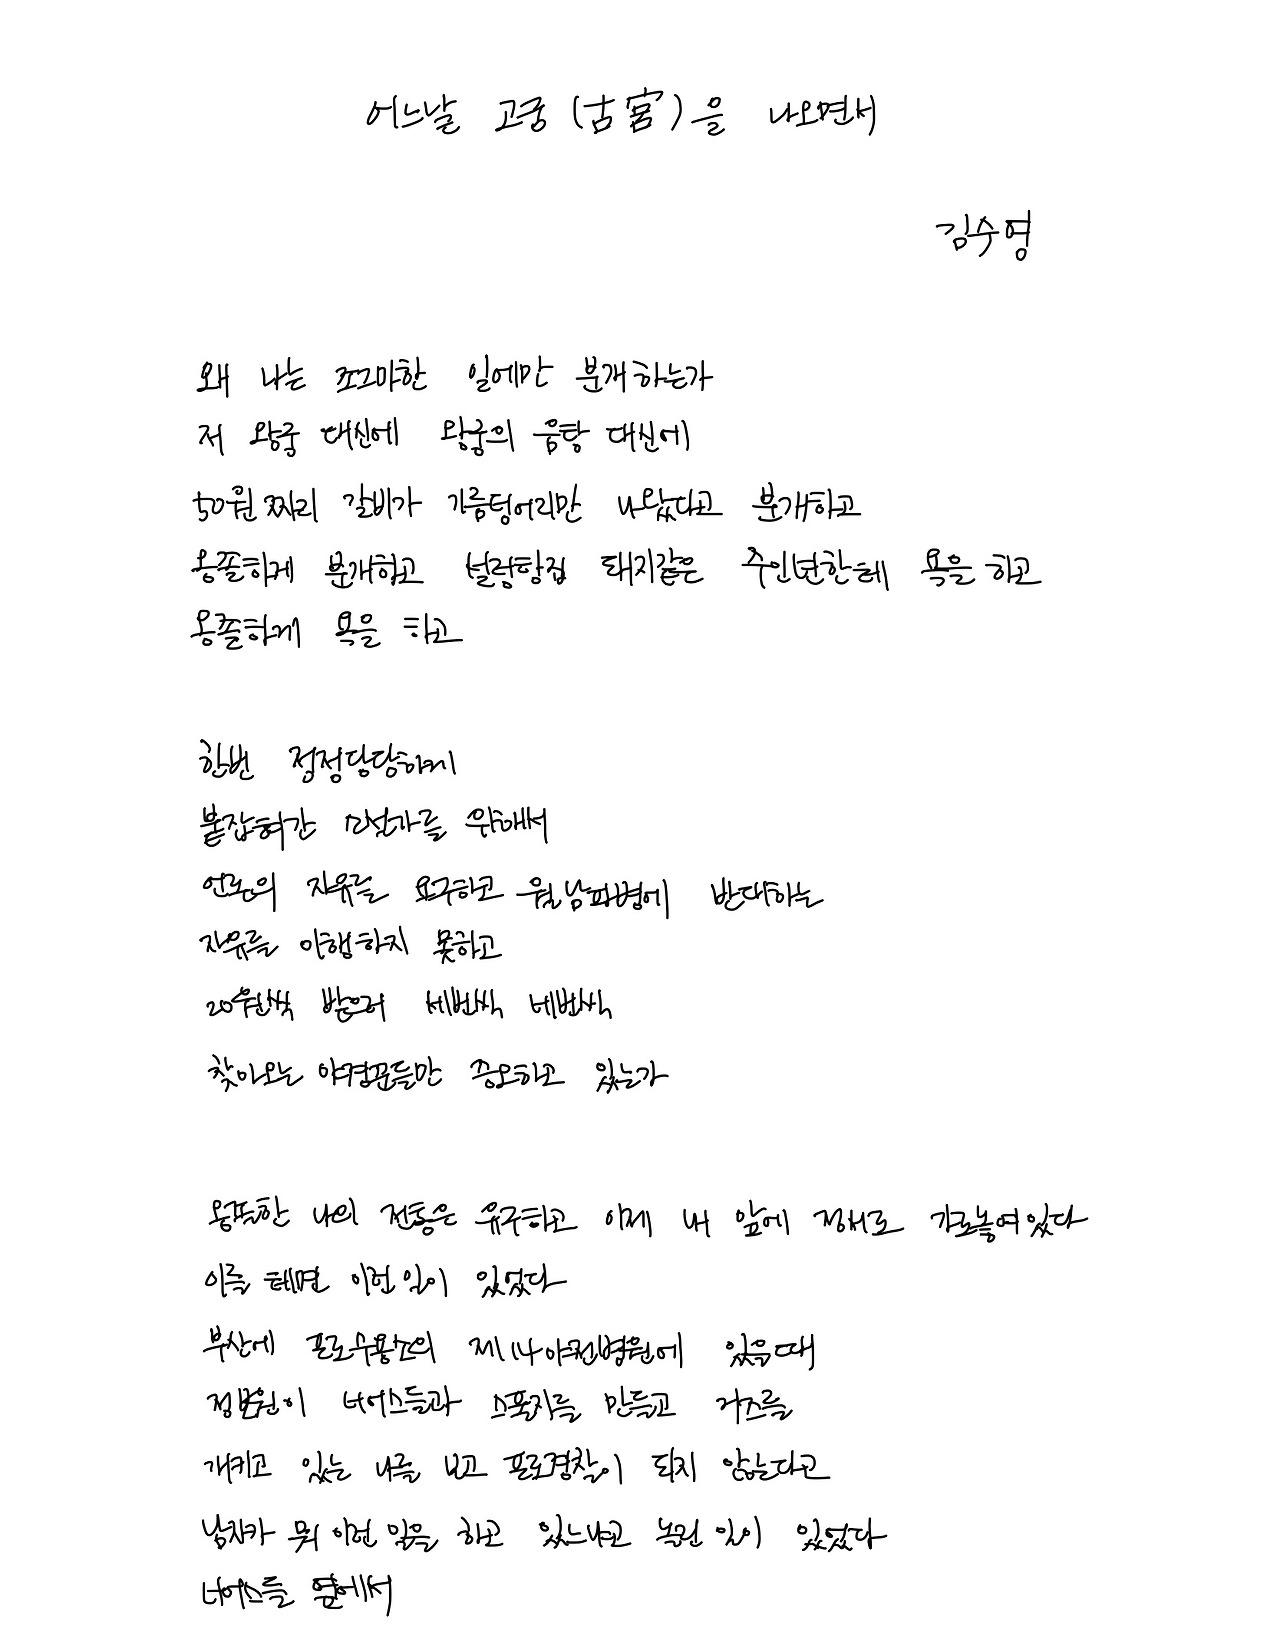 어느날 고궁(古宮)을 나오면서
김수영
왜 나는 조그마한 일에만 분개하는가
저 왕궁 대신에 왕궁의 음탕 대신에
50원짜리 갈비가 기름덩어리만 나왔다고 분개하고
옹졸하게 분개하고 설렁탕집 돼지같은 주인년한테 욕을 하고
옹졸하게 욕을 하고
한번 정정당당하게
붙잡혀간 소설가를 위해서
언론의 자유를 요구하고 월남파병에 반대하는
자유를 이행하지 못하고
20원씩 받으러 세번씩 네번씩
찾아오는 야경꾼들만 증오하고 있는가
옹졸한 나의 전통은 유구하고 이제 내 앞에 정서로 가로놓여있다
이를테면 이런일이 있었다
부산에 포로수용소의 제14야전병원에 있을때
정보원이 너어스들과 스폰지를 만들고 거즈를
개키고 있는 나를 보고 포로경찰이 되지 않는다고
남자가 뭐 이런 일을 하고 있느냐고 놀린 일이 있었다
너어스들 옆에서